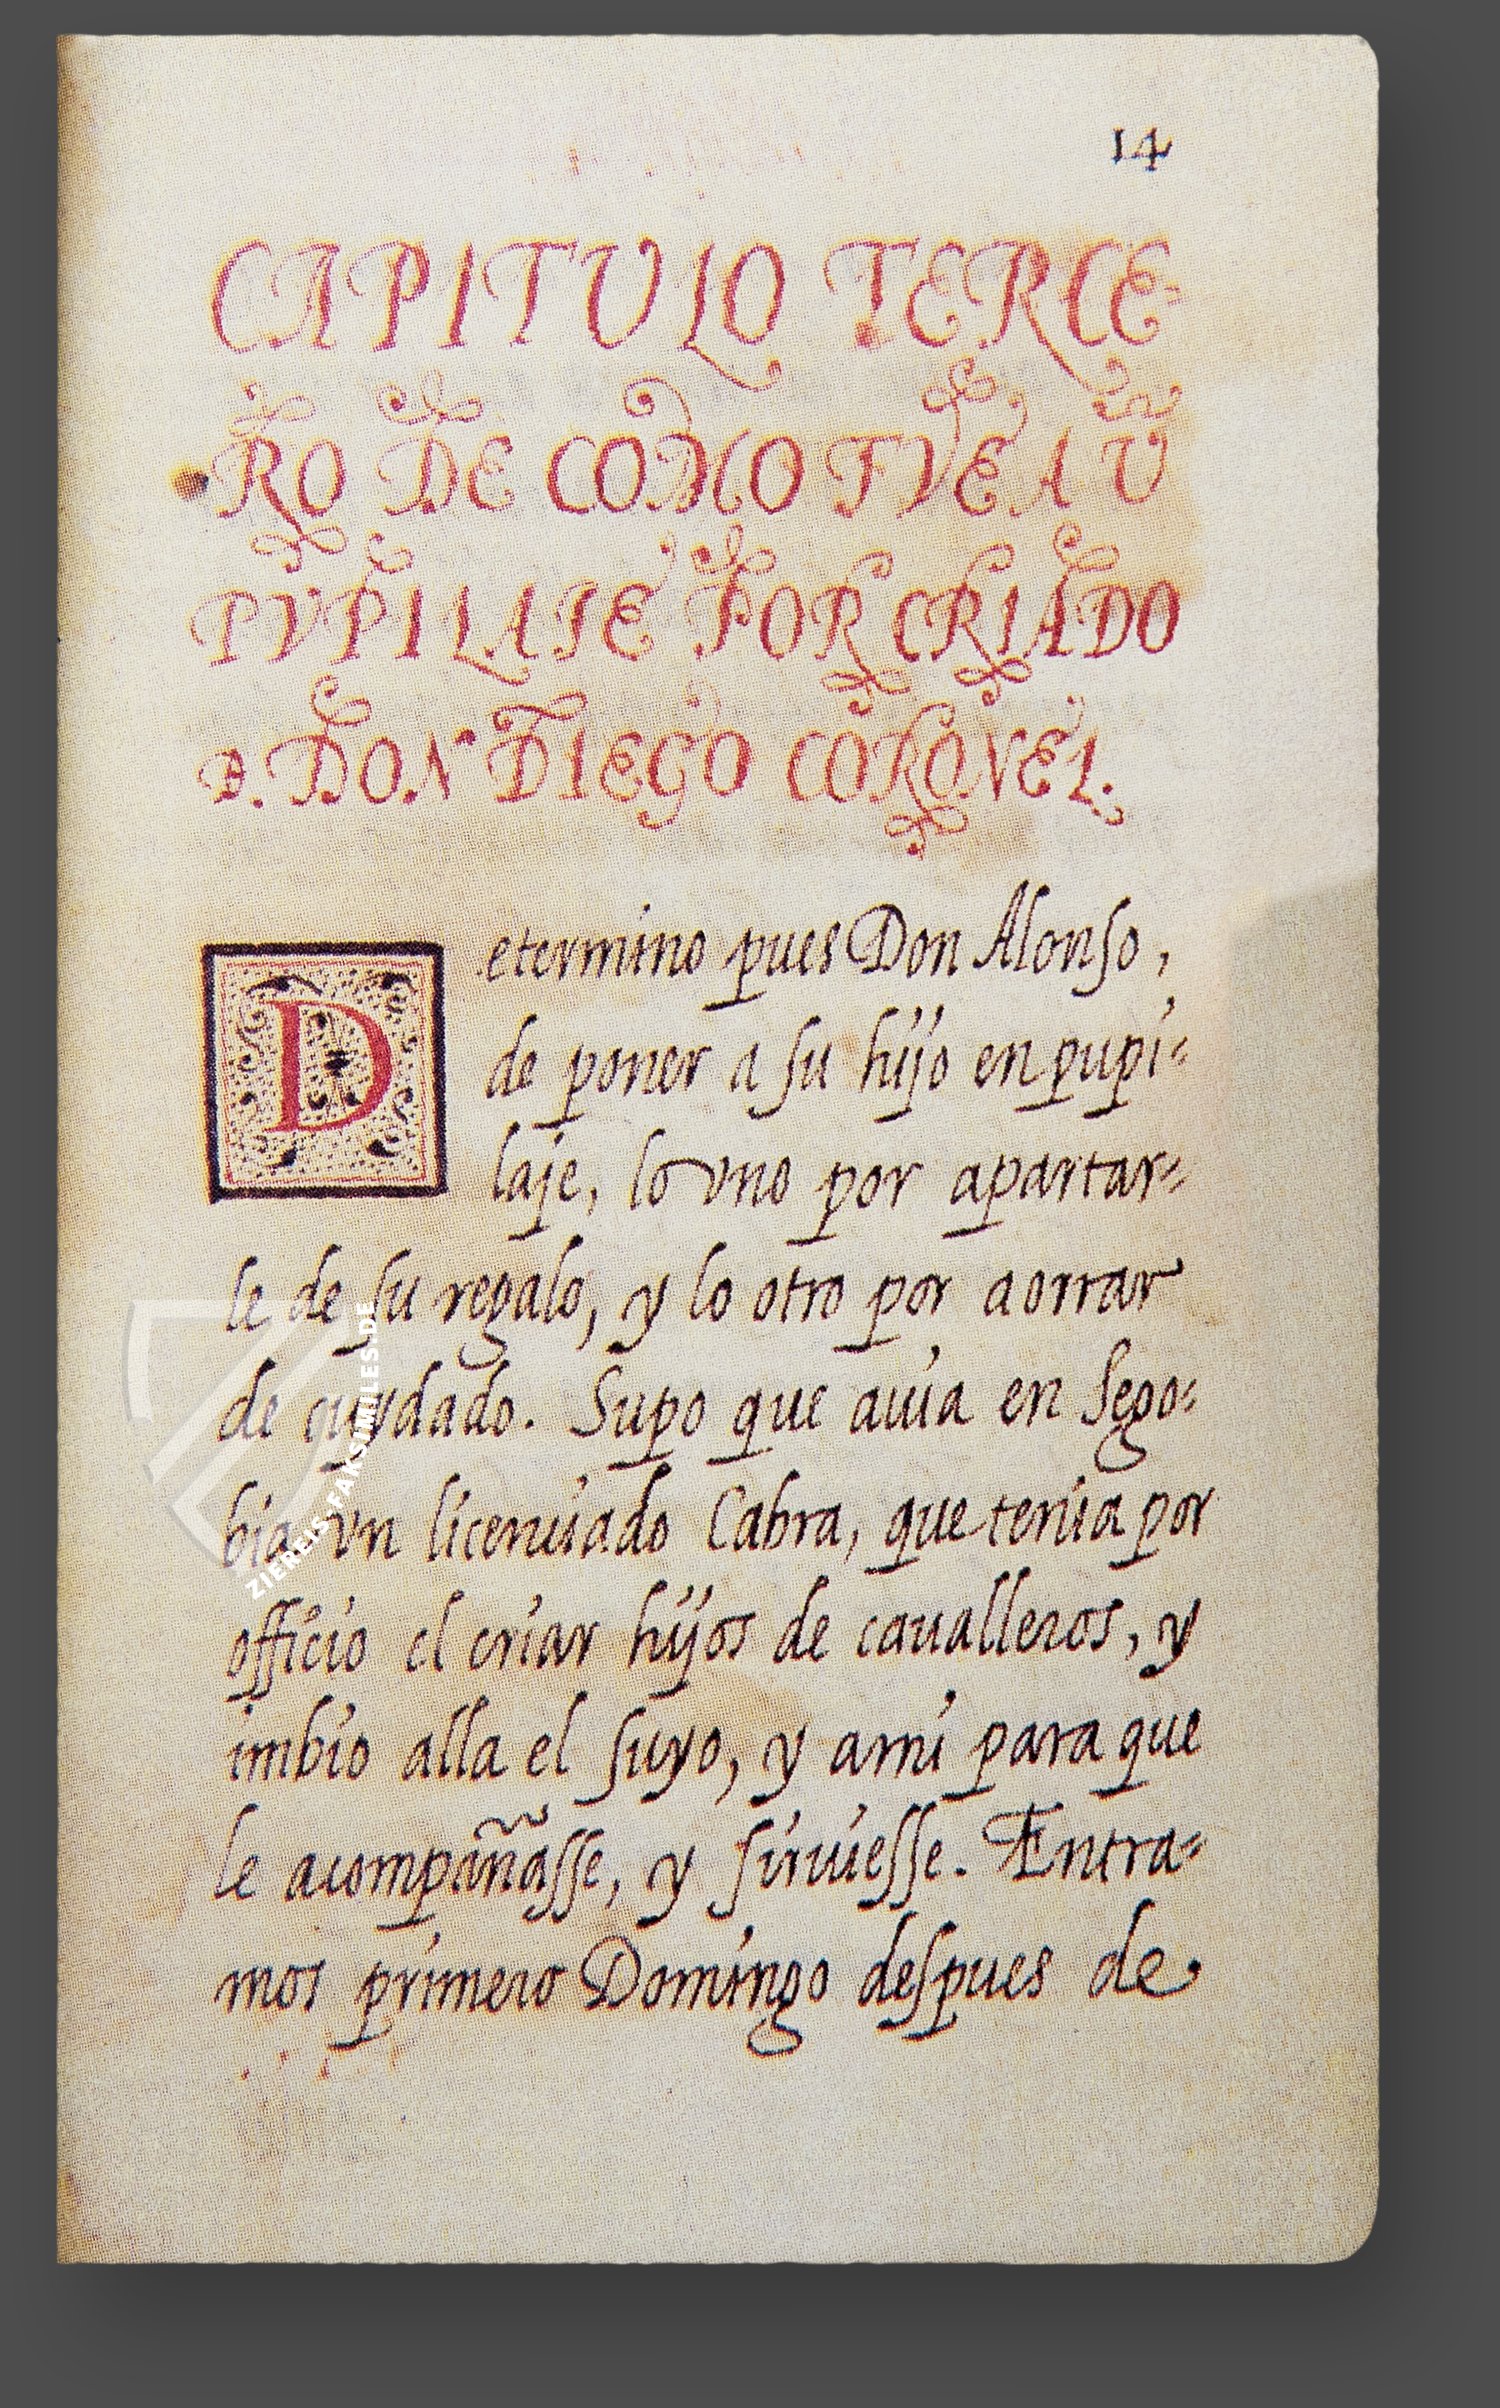 14
CAPITULO TERCE-
RO DE COMO FVE A U̅
PVPILAJE POR CRIADO
D. DON DIEGO CORONEL.
Determino pues Don Alonso,
de poner a su hijo en pupi-
laje, lo vno por apartar-
le de su regalo, y lo otro por aorrar
de cuydado. Supo que auia en Sego-
bia vn licenciado Cabra, que tenia por
officio el criar hijos de caualleros, y
imbio alla el suyo, y a mi para que
le acompañasse, y siruiesse. Entra-
mos primero Domingo despues de
ZIEREIS-FAKSIMILES.DE